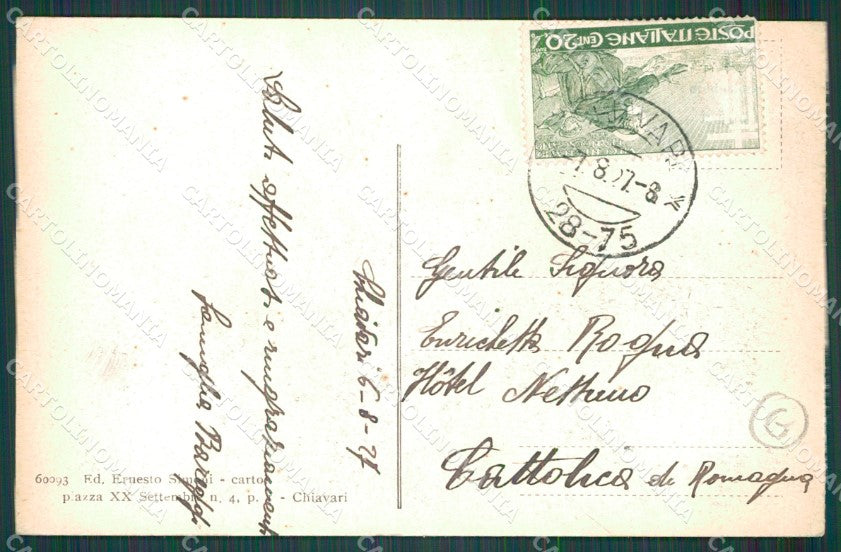 POSTE ITALIANE CENT 20
CHIAVARI
7.8.27-8
28-75
Saluti affettuosi e ringraziamenti
famiglia
Chiavari 6-8-27
Gentile Signora
Enrichetta Rogna
Hôtel Nettuno
Cattolica di Romagna
G
60093 Ed. Ernesto Simoni - carto
piazza XX Settembre n. 4, p. - Chiavari
CARTOLINOMANIA